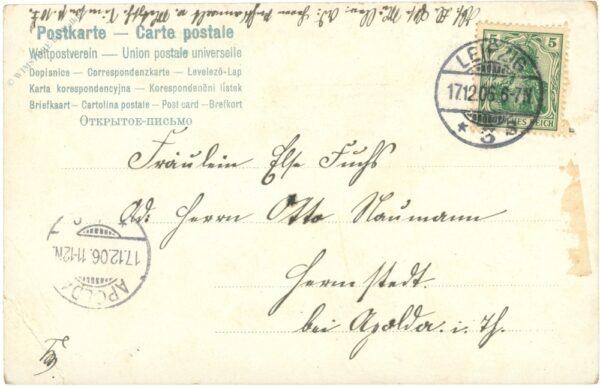 Postkarte — Carte postale
Weltpostverein — Union postale universelle
Dopisnice — Correspondenzkarte — Levelező-Lap
Karta korespondencyjna — Korespondenční lístek
Briefkaart — Cartolina postale — Post card — Brefkort
Открытое-письмо
5 5
DEUTSCHES REICH
LEIPZIG
17.12.06.6-7N
* 3
Fräulein Else Fuchs
Ad: Herrn Otto Naumann
Hermstedt.
bei Apolda. i. Th.
APOLDA
17.12.06.11-12N.